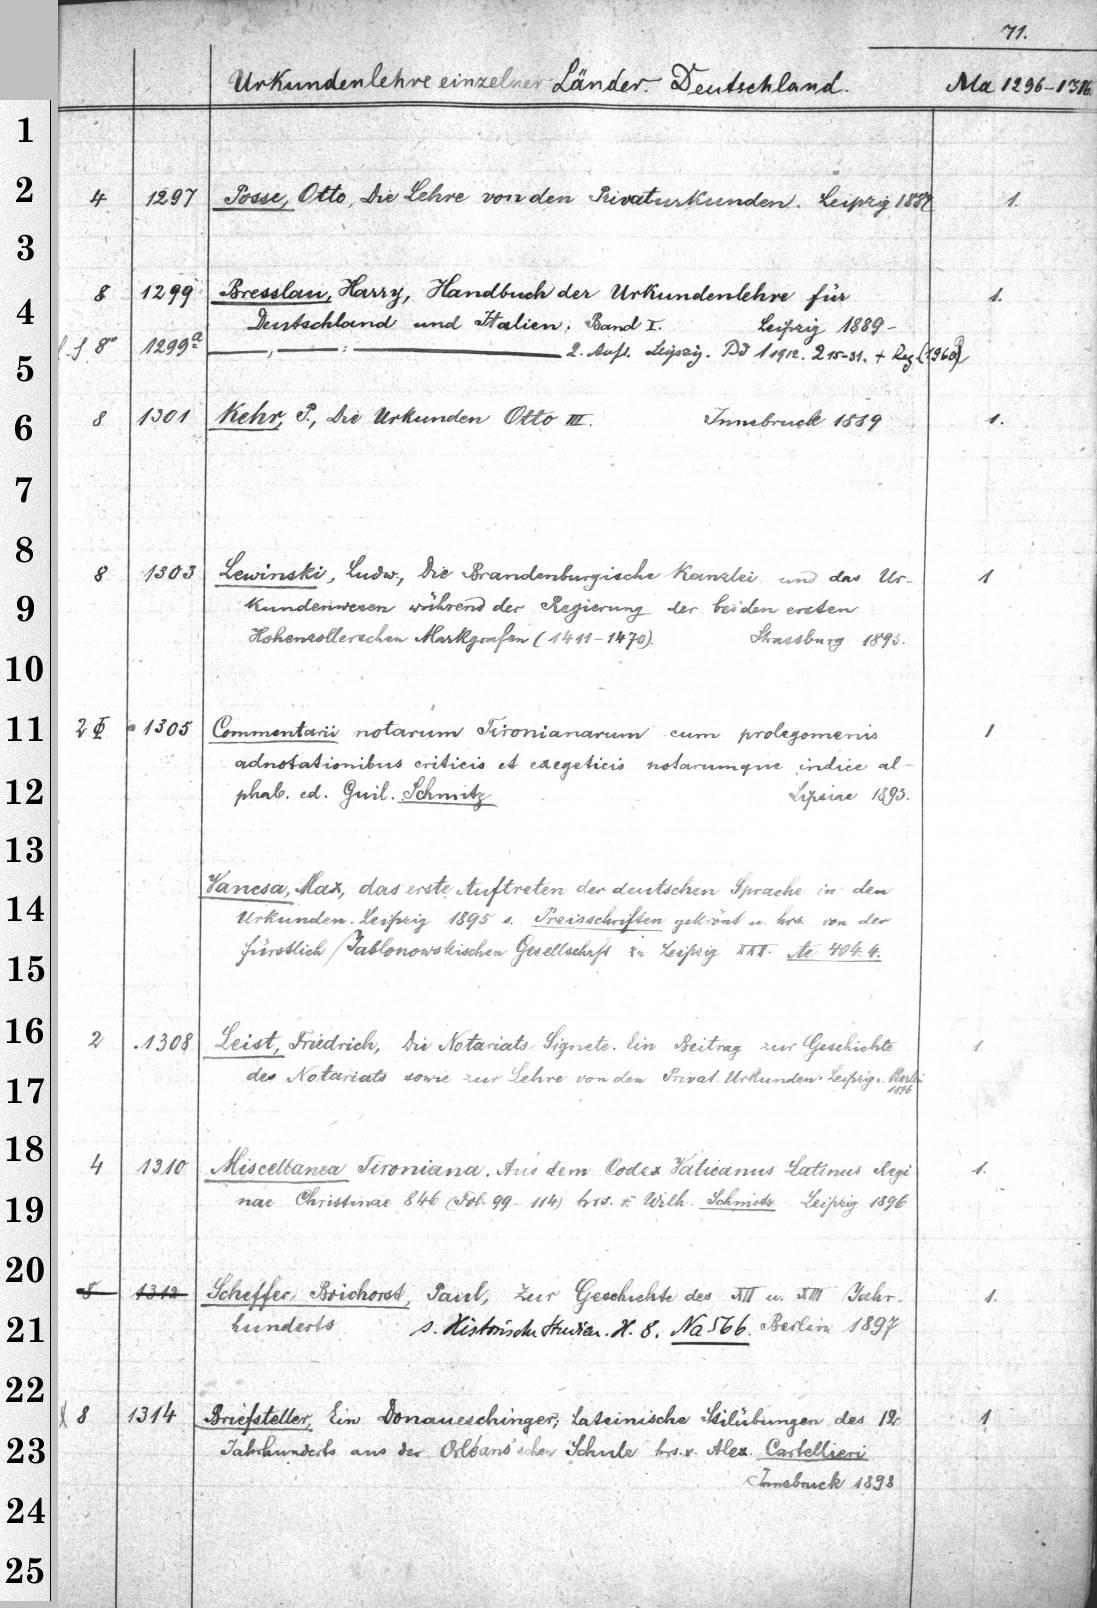 71.
Urkundenlehre einzelner Länder. Deutschland. Ma 1296-1316.
1
2 4 1297 Posse, Otto, Die Lehre von den Privaturkunden. Leipzig 1887 1.
3
8 1299 Bresslau, Harry, Handbuch der Urkundenlehre für 1.
4 Deutschland und Italien. Band I. Leipzig 1889-
8° 1299a —, — : — 2. Aufl. Leipzig. Bd 1 1912. 2 15-31. + Reg. (1960)
5
6 8 1301 Kehr, P., Die Urkunden Otto III. Innsbruck 1889 1.
7
8 8 1303 Lewinski, Ludw., Die Brandenburgische Kanzlei und das Ur- 1
9 kundenwesen während der Regierung der beiden ersten
10 Hohenzollerschen Markgrafen (1411-1470). Strassburg 1893.
11 2 1305 Commentarii notarum Tironianarum cum prolegomenis 1
adnotationibus criticis et exegeticis notarumque indice al-
12 phab. ed. Guil. Schmitz Lipsiae 1893.
13
Vancsa, Max, das erste Auftreten der deutschen Sprache in den
14 Urkunden. Leipzig 1895 s. Preisschriften gekrönt u. hrs. von der
15 fürstlich Jablonowskischen Gesellschaft zu Leipzig XXX. Ae 404.4.
16 2 1308 Leist, Friedrich, Die Notariats-Signete. Ein Beitrag zur Geschichte 1
17 des Notariats sowie zur Lehre von den Privat Urkunden. Leipzig. Berlin
1896
18 4 1310 Miscellanea Tironiana. Aus dem Codex Vaticanus Latinus Regi 1.
19 nae Christinae 846 (Fol. 99-114) hrs. v. Wilh. Schmitz Leipzig 1896
20 8 1312 Scheffer-Boichorst, Paul, Zur Geschichte des XII u. XIII Jahr- 1.
21 hunderts s. Historische Studien. H. 8. Na 566. Berlin 1897
22
8 1314 Briefsteller, Ein Donaueschinger, Lateinische Stilübungen des 12. 1
23 Jahrhunderts aus der Orléans'schen Schule hrs. v. Alex. Cartellieri
Innsbruck 1898
24
25